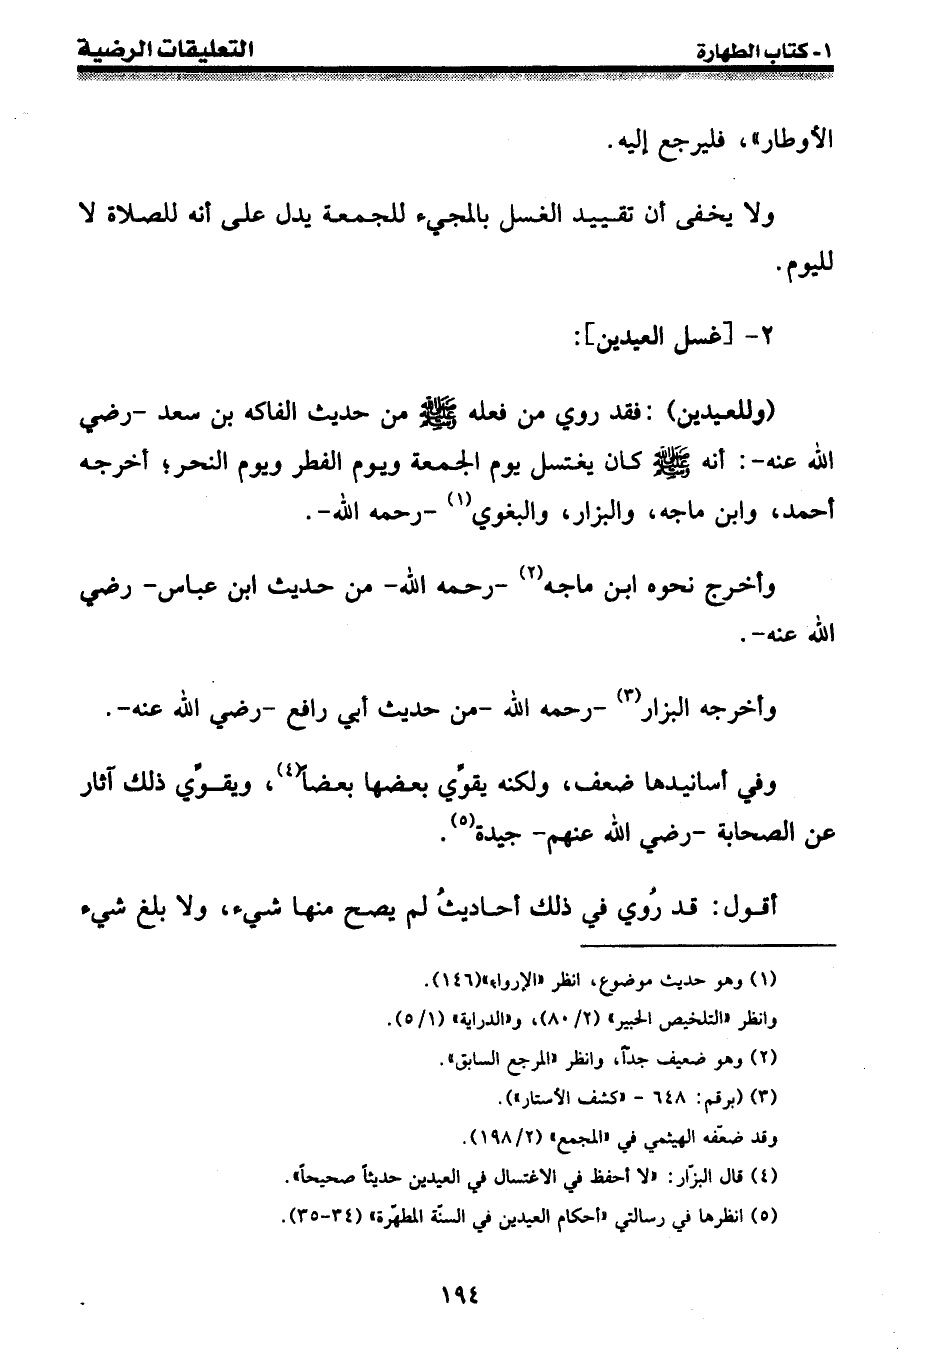 ١- كتاب الطهارة التعليقات الرضية
الأوطار»، فليرجع إليه.
ولا يخفى أن تقييد الغسل بالمجيء للجمعة يدل على أنه للصلاة لا
لليوم.
٢- [غسل العيدين]:
(وللعيدين) :فقد روي من فعله ﷺ من حديث الفاكه بن سعد -رضي
الله عنه-: أنه ﷺ كان يغتسل يوم الجمعة ويوم الفطر ويوم النحر؛ أخرجه
أحمد، وابن ماجه، والبزار، والبغوي(١) -رحمه الله-.
وأخرج نحوه ابن ماجه(٢) -رحمه الله- من حديث ابن عباس- رضي
الله عنه-.
وأخرجه البزار(٣) -رحمه الله -من حديث أبي رافع -رضي الله عنه-.
وفي أسانيدها ضعف، ولكنه يقوِّي بعضها بعضاً(٤)، ويقوِّي ذلك آثار
عن الصحابة -رضي الله عنهم- جيدة(٥).
أقول: قد رُوي في ذلك أحاديثُ لم يصح منها شيء، ولا بلغ شيء
(١) وهو حديث موضوع، انظر «الإرواء»(١٤٦).
وانظر «التلخيص الحبير» (٢/ ٨٠)، و«الدراية» (١/ ٥).
(٢) وهو ضعيف جدّاً، وانظر «المرجع السابق».
(٣) (برقم: ٦٤٨ - «كشف الأستار»).
وقد ضعّفه الهيثمي في «المجمع» (٢/ ١٩٨).
(٤) قال البزّار: «لا أحفظ في الاغتسال في العيدين حديثاً صحيحاً».
(٥) انظرها في رسالتي «أحكام العيدين في السنّة المطهّرة» (٣٤-٣٥).
١٩٤